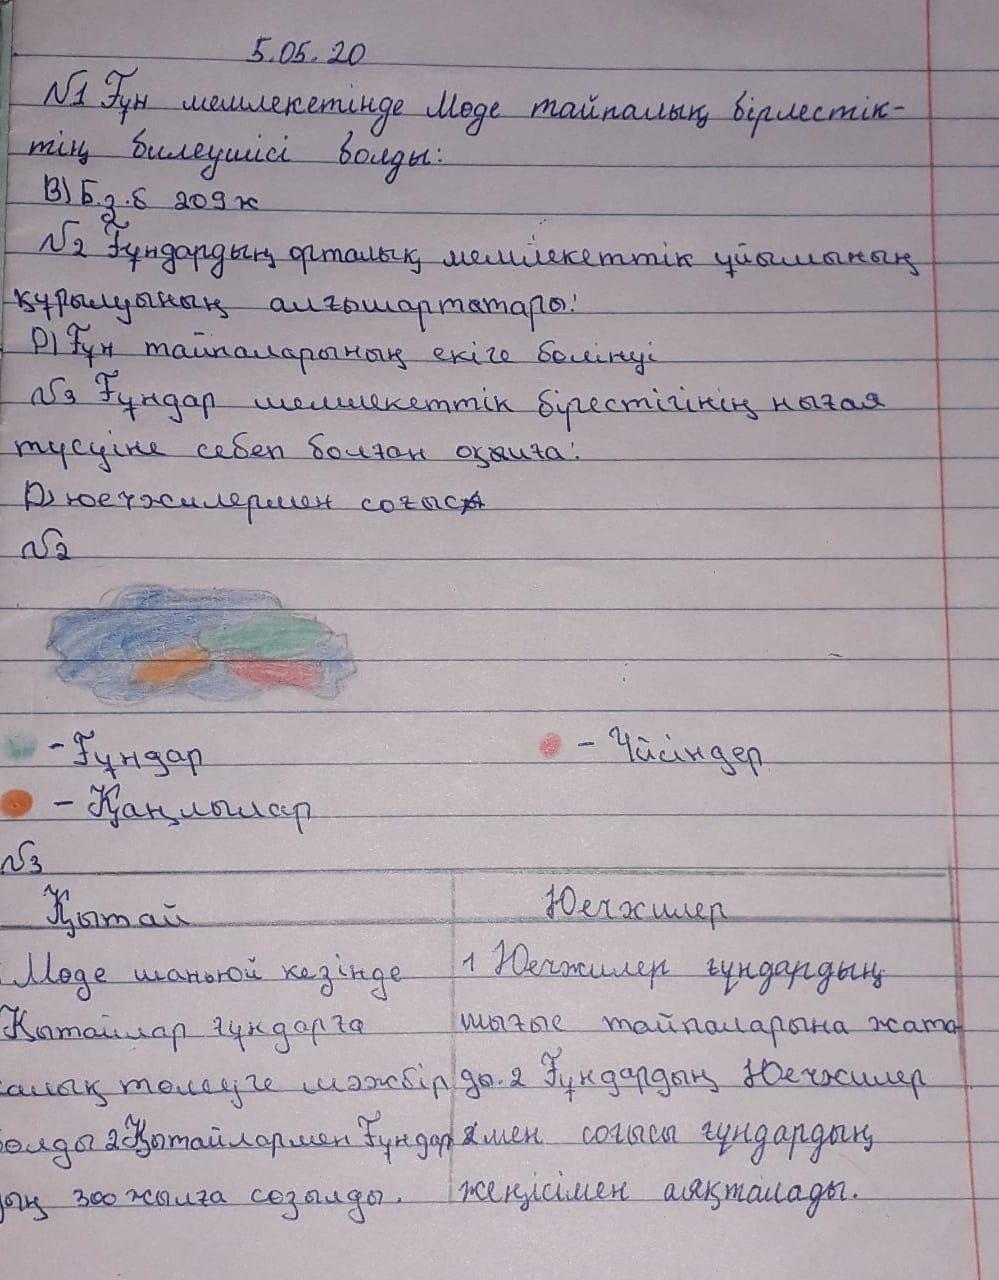 5.05.20
№1 Ғұн мемлекетінде Мөде тайпалық бірлестік-
тің билеушісі болды:
В) Б.з.б 209ж
№2 Ғұндардың орталық мемлекеттік ұйымының
құрылуының алғышартатары:
D) Ғұн тайпаларының екіге бөлінуі
№3 Ғұндар мемлекеттік бірлестігінің нығая
түсуіне себеп болған оқиға:
D) юечжилермен соғыс
№2
- Ғұндар
- Үйсіндер
- Қаңлылар
№3
Қытай
Юечжилер
Мөде шаньюй кезінде
Қытайлар ғұндарға
алық төлеуге мәжбір
олды 2 Қытайлармен Ғұндар
ың 300 жылға созылды.
1 Юечжилер ғұндардың
шығыс тайпаларына жата
ды. 2 Ғұндардың Юечжилер
мен соғысы ғұндардың
жеңісімен аяқталады.